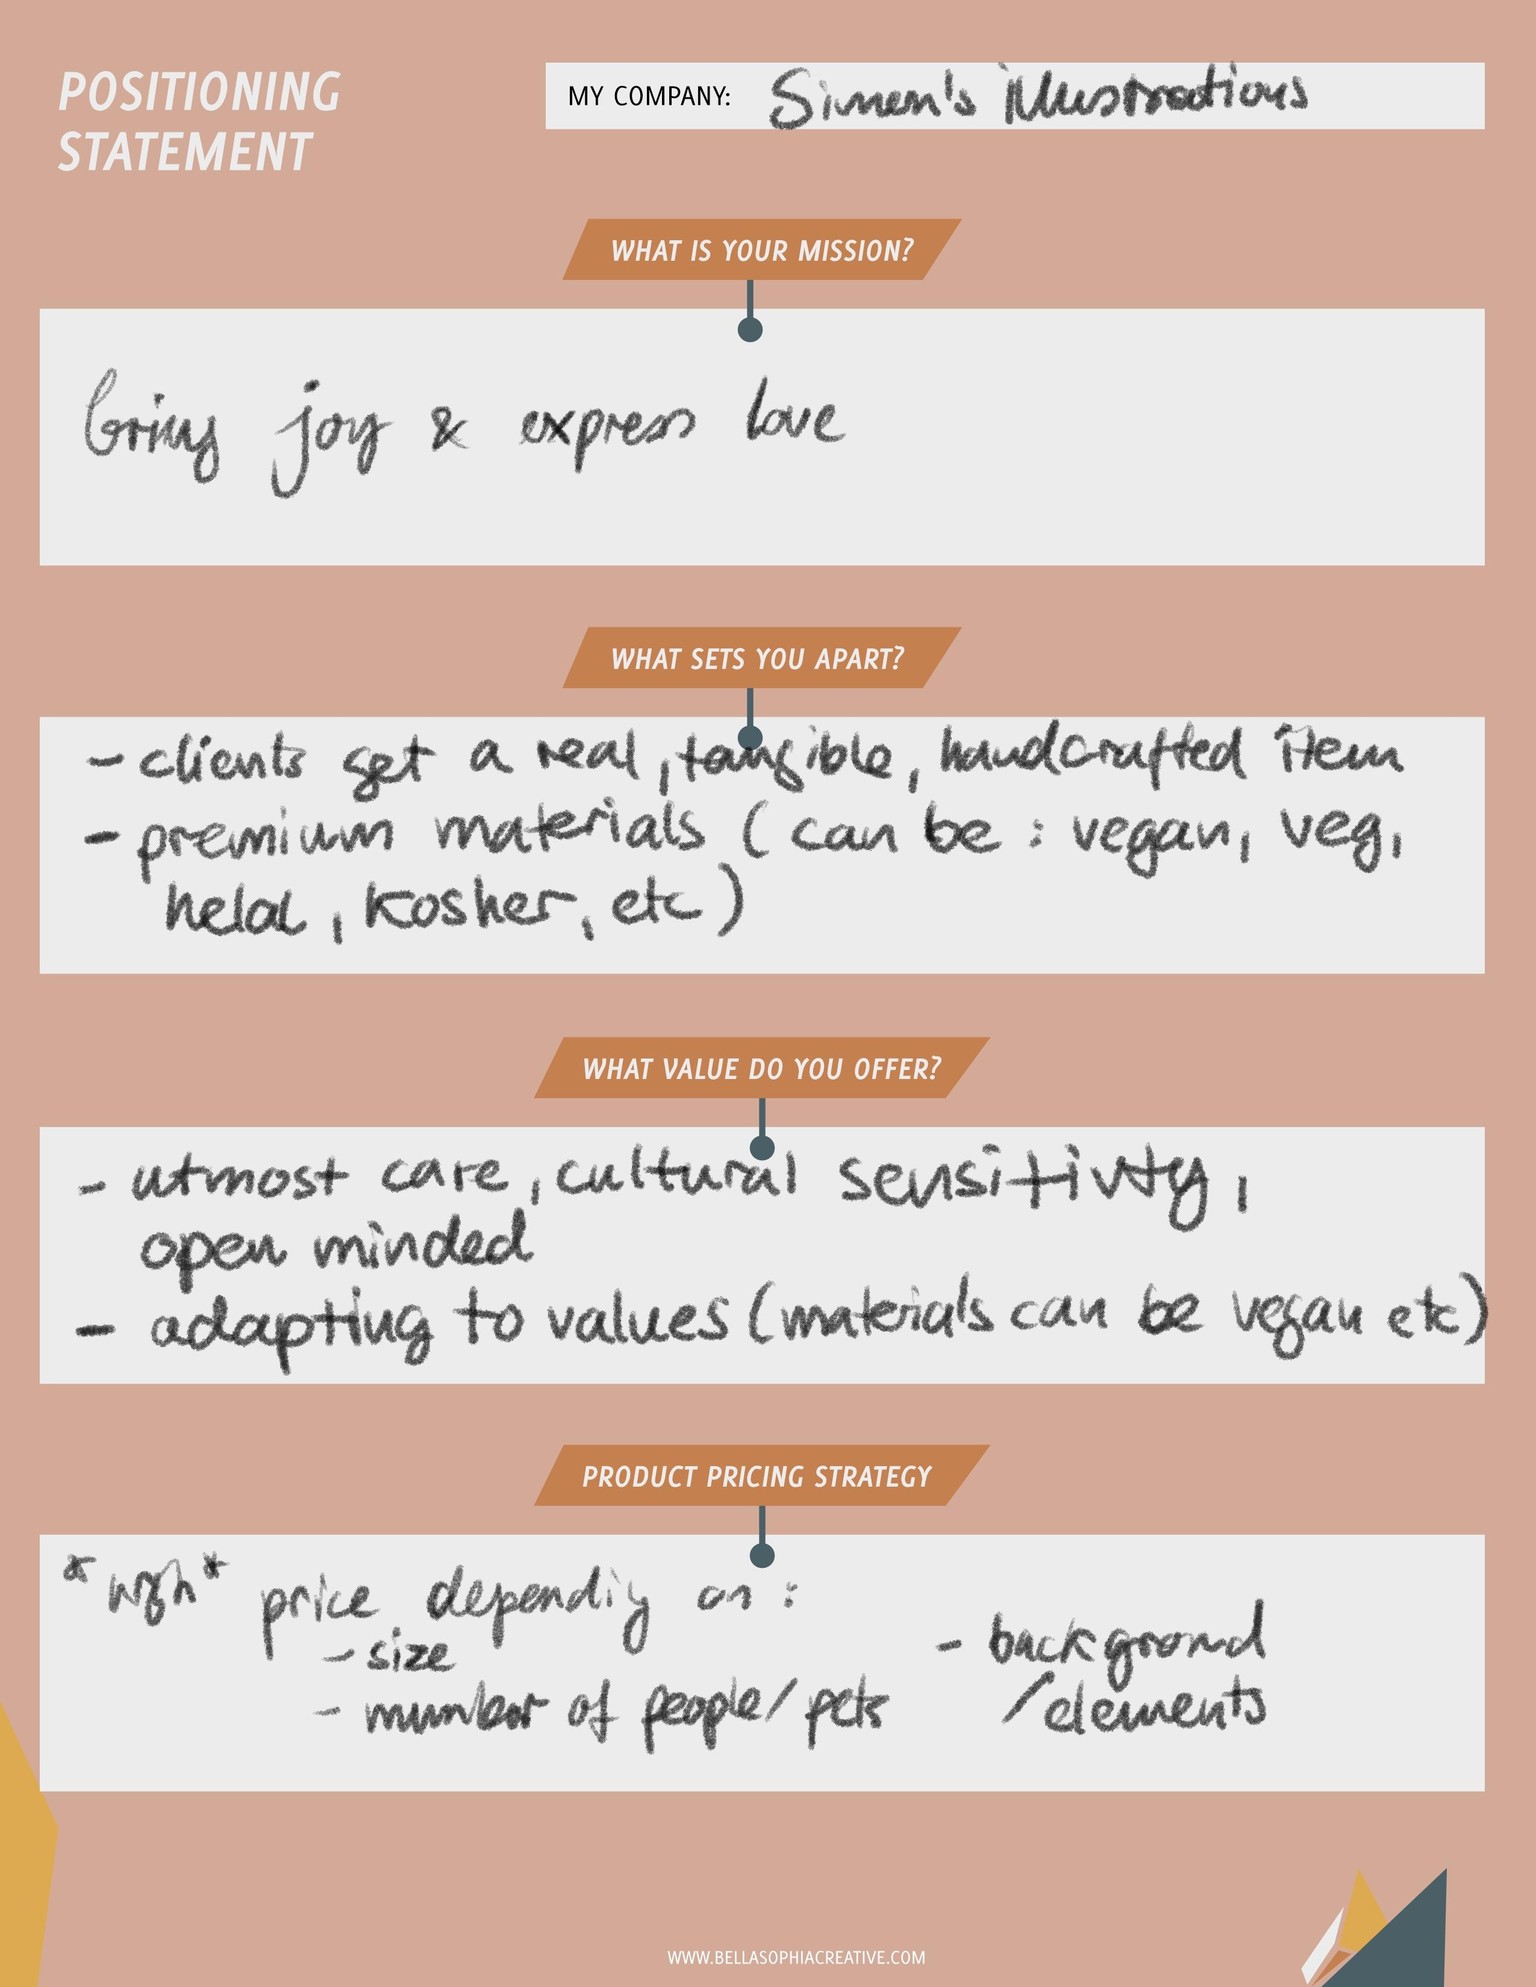 POSITIONING
STATEMENT
MY COMPANY: Simen's illustrations
WHAT IS YOUR MISSION?
bring joy & express love
WHAT SETS YOU APART?
- clients get a real, tangible, handcrafted item
- premium materials (can be: vegan, veg,
helal, kosher, etc)
WHAT VALUE DO YOU OFFER?
- utmost care, cultural sensitivty,
open minded
- adapting to values (materials can be vegan etc)
PRODUCT PRICING STRATEGY
price depending on:
- size
- number of people/pets
- background
/elements
WWW.BELLASOPHIACREATIVE.COM